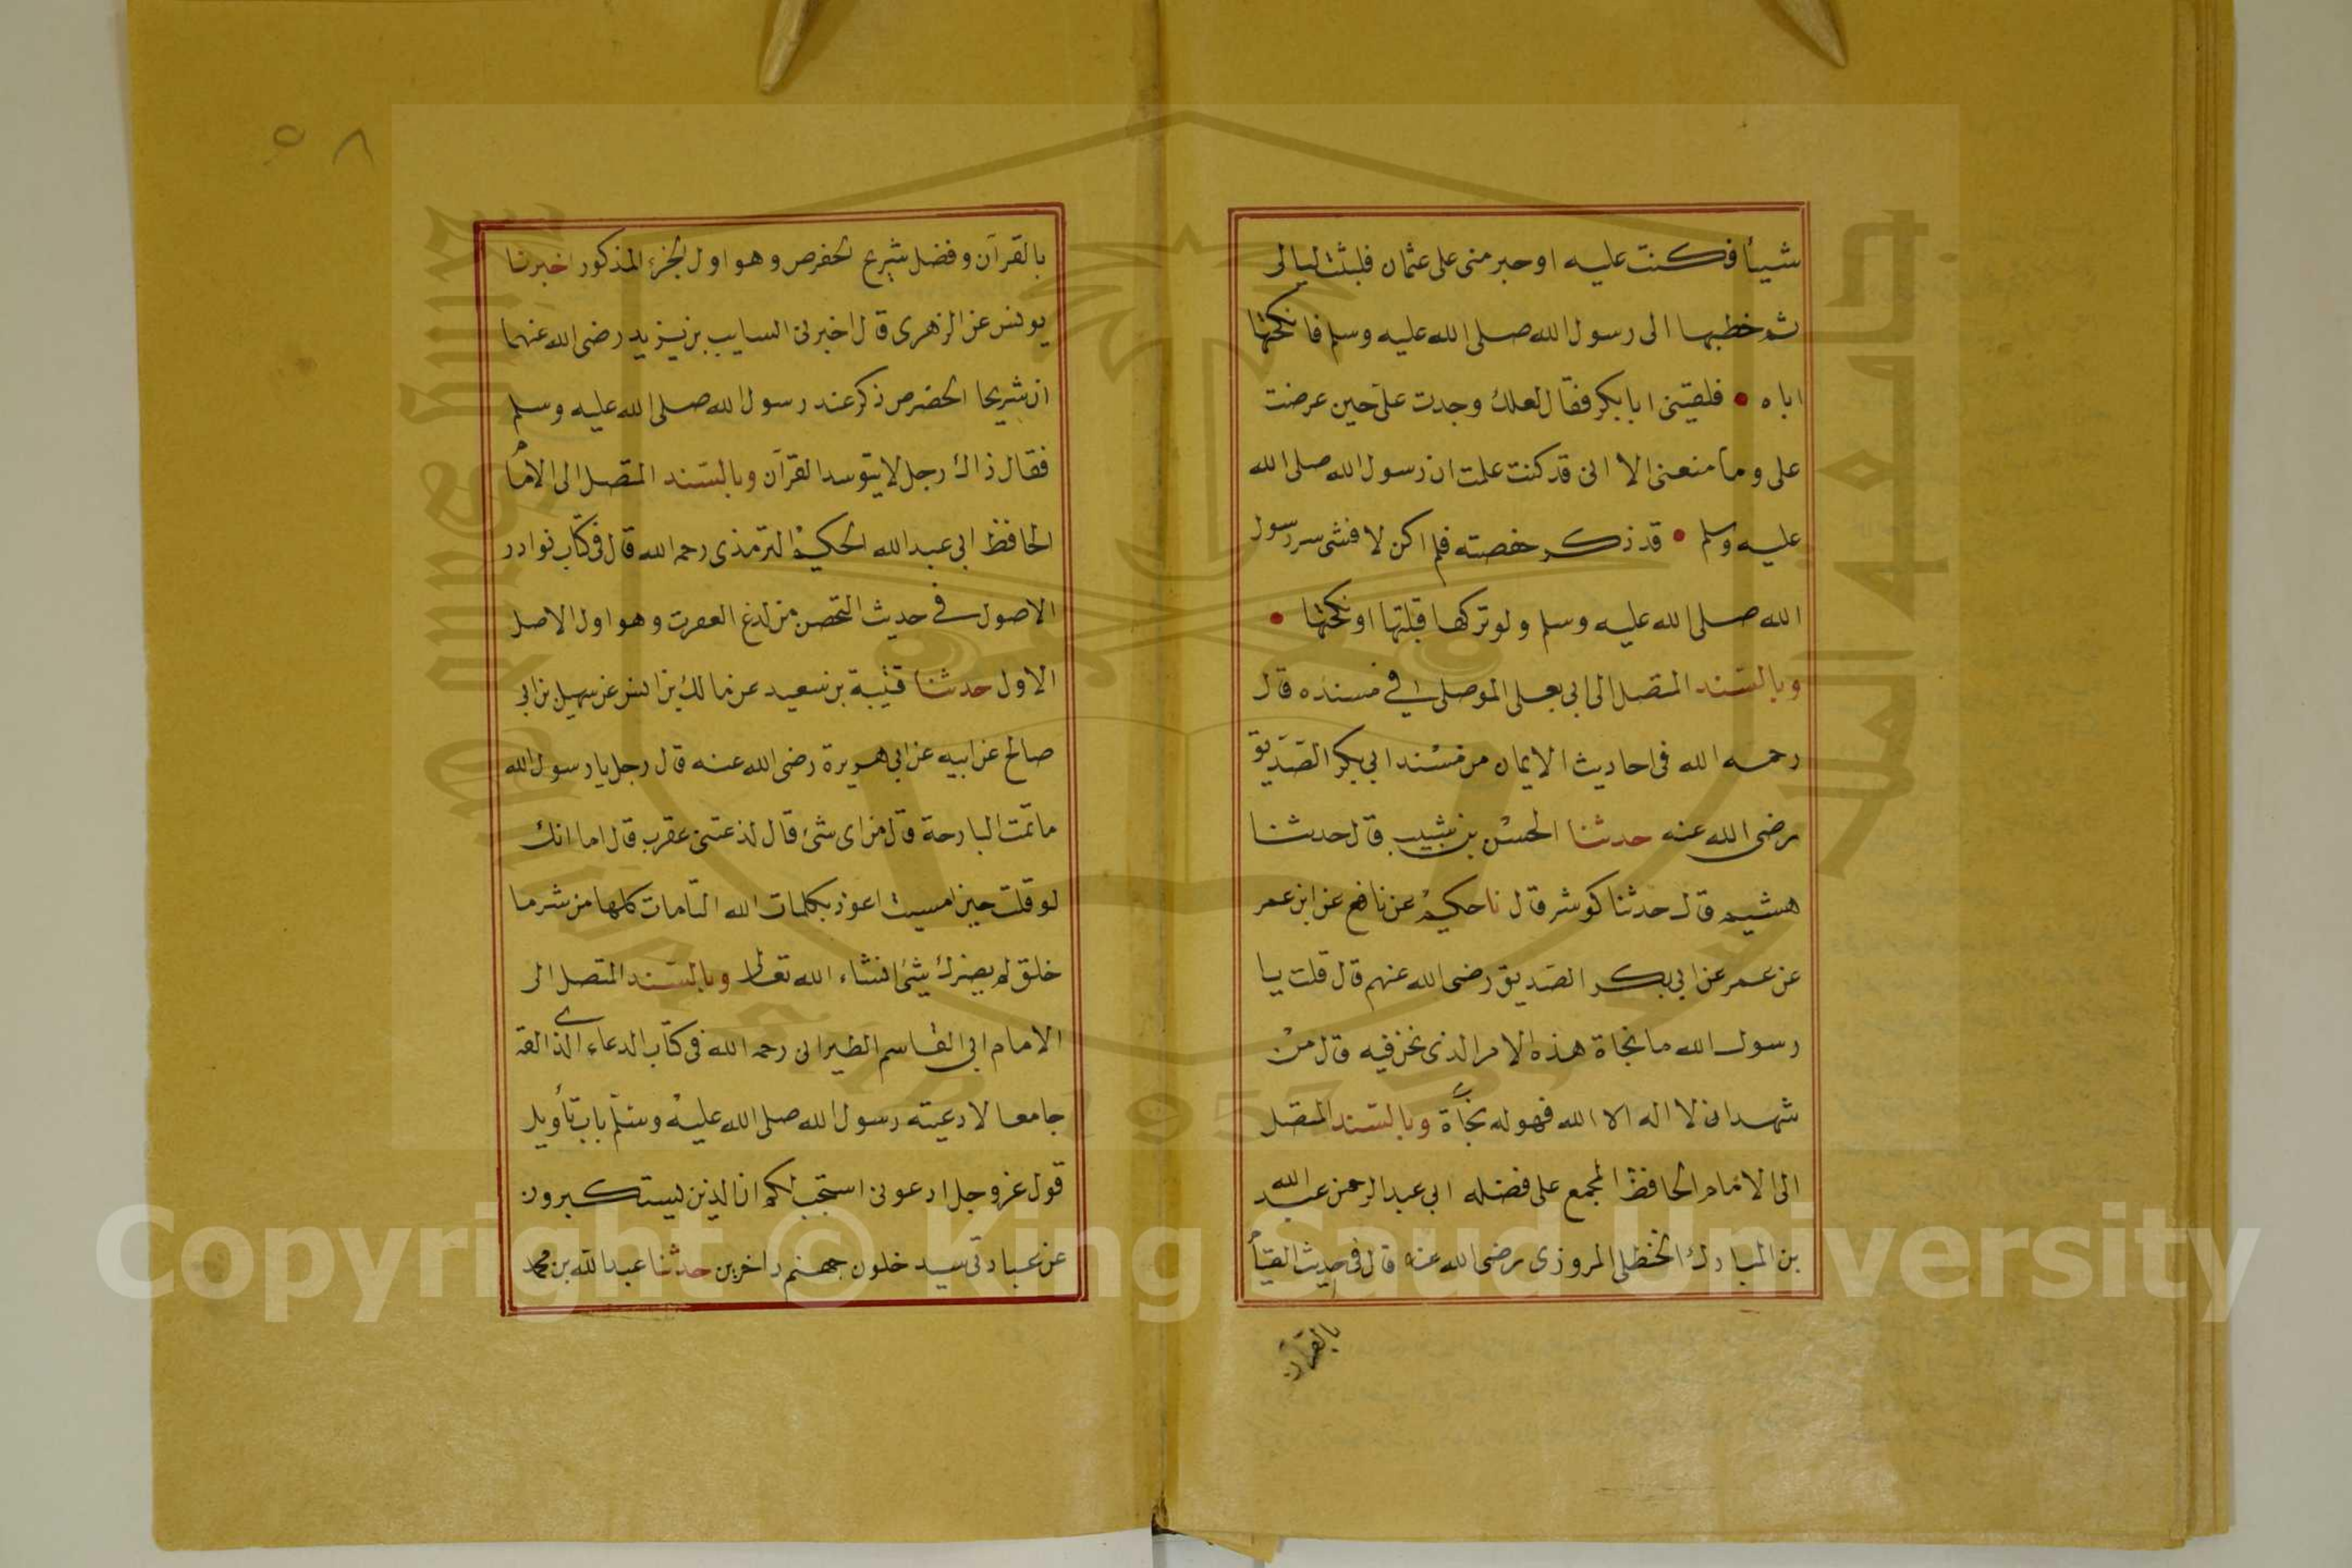 شيأ فكنت عليه اوجد منى على عثمان فلبثت ليالى
ثم خطبها الى رسول الله صلى الله عليه وسلم فانكحتها
اياه • فلقينى ابا بكر فقال لعلك وجدت على حين عرضت
على وما منعنى الا انى قد كنت علمت ان رسول الله صلى الله
عليه وسلم • قد ذكر حفصته فلم اكن لافشى سر رسول
الله صلى الله عليه وسلم ولو تركها قبلتها او نكحتها •
وبالسند المتصل الى ابى يعلى الموصلى فى مسنده قال
رحمه الله فى احاديث الايمان من مسند ابى بكر الصديق
رضى الله عنه حدثنا الحسن بن شبيب قال حدثنا
هشيم قال حدثنا كوثر قال نا حكيم عن نافع عن ابن عمر
عن عمر عن ابى بكر الصديق رضى الله عنهم قال قلت يا
رسول الله ما نجاة هذه الامر الذى نحن فيه قال من
شهد ان لا اله الا الله فهو له نجاة وبالسند المتصل
الى الامام الحافظ المجمع على فضله ابى عبد الرحمن عبد الله
بن المبارك الحنظلى المروزى رضى الله عنه قال فى حديث القيا
بالقرآن
٥٨
بالقرآن وفضل شريح الحضرمى وهو اول الجزء المذكور اخبرنا
يونس عن الزهرى قال اخبرنى السايب بن يزيد رضى الله عنهما
ان شريحا الحضرمى ذكر عند رسول الله صلى الله عليه وسلم
فقال ذاك رجل لا يتوسد القرآن وبالسند المتصل الى الامام
الحافظ ابى عبد الله الحكيم الترمذى رحمه الله قال فى كتاب نوادر
الاصول فى حديث التحصن من لدغ العقرب وهو اول الاصل
الاول حدثنا قتيبة بن سعيد عن مالك بن انس عن سهيل بن ابى
صالح عن ابيه عن ابى هريرة رضى الله عنه قال رجل يا رسول الله
ما نمت البارحة قال من اى شئ قال لذعتنى عقرب قال اما انك
لو قلت حين امسيت اعوذ بكلمات الله التامات كلها من شر ما
خلق لم يضرك شئ انشاء الله تعالى وبالسند المتصل الى
الامام ابى القاسم الطبرانى رحمه الله فى كتاب الدعاء الذى الفه
جامعا لادعيته رسول الله صلى الله عليه وسلم باب تأويل
قول عز وجل ادعونى استجب لكم ان الذين يستكبرون
عن عبادتى سيدخلون جهنم داخرين حدثنا عبد الله بن محمد
Copyright © King Saud University